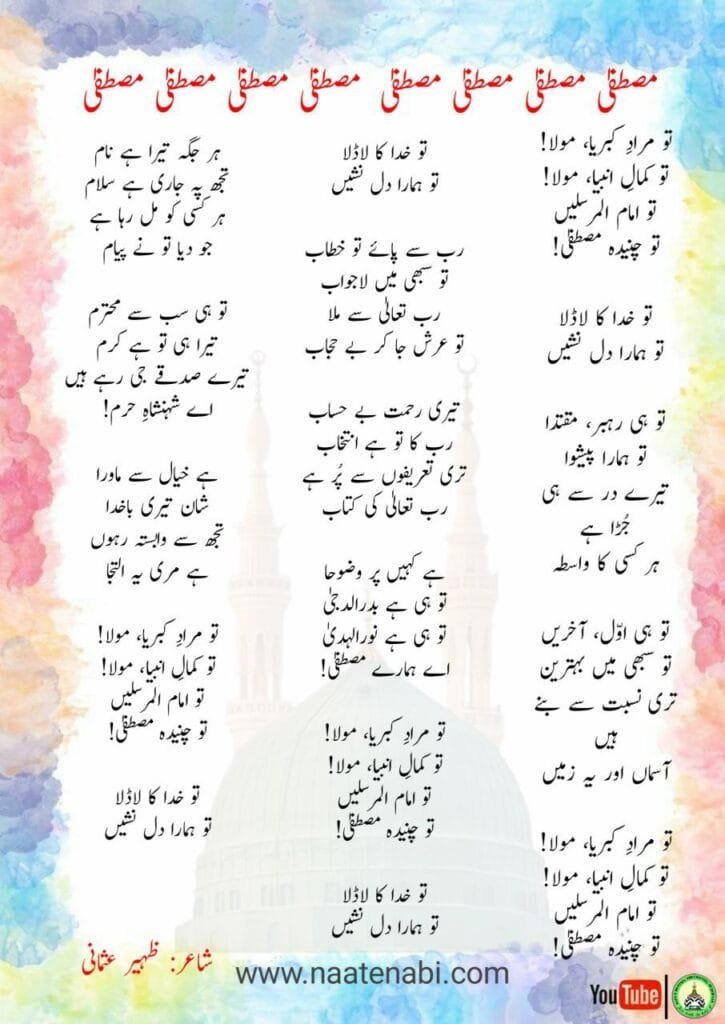 مصطفیٰ مصطفیٰ مصطفیٰ مصطفیٰ مصطفیٰ مصطفیٰ مصطفیٰ مصطفیٰ
تو مرادِ کبریا، مولا!
تو کمالِ انبیا، مولا!
تو امام المرسلیں
تو چنیدہ مصطفیٰ!
تو خدا کا لاڈلا
تو ہمارا دل نشیں
تو ہی رہبر، مقتدا
تو ہمارا پیشوا
تیرے در سے ہی
جُڑا ہے
ہر کسی کا واسطہ
تو ہی اوّل، آخریں
تو سبھی میں بہترین
تری نسبت سے بنے
ہیں
آسماں اور یہ زمیں
تو مرادِ کبریا، مولا!
تو کمالِ انبیا، مولا!
تو امام المرسلیں
تو چنیدہ مصطفیٰ!
تو خدا کا لاڈلا
تو ہمارا دل نشیں
رب سے پائے تو خطاب
تو سبھی میں لاجواب
رب تعالیٰ سے ملا
تو عرش جا کر بے حجاب
تیری رحمت بے حساب
رب کا تو ہے انتخاب
تری تعریفوں سے پُر ہے
رب تعالیٰ کی کتاب
ہے کہیں پر وضوحا
تو ہی ہے بدرالدجیٰ
تو ہی ہے نورالہدیٰ
اے ہمارے مصطفیٰ!
تو مرادِ کبریا، مولا!
تو کمالِ انبیا، مولا!
تو امام المرسلیں
تو چنیدہ مصطفیٰ!
تو خدا کا لاڈلا
تو ہمارا دل نشیں
ہر جگہ تیرا ہے نام
تجھ پہ جاری ہے سلام
ہر کسی کو مل رہا ہے
جو دیا تو نے پیام
تو ہی سب سے محترم
تیرا ہی تو ہے کرم
تیرے صدقے جی رہے ہیں
اے شہنشاہِ حرم!
ہے خیال سے ماورا
شان تیری باخدا
تجھ سے وابستہ رہوں
ہے مری یہ التجا
تو مرادِ کبریا، مولا!
تو کمالِ انبیا، مولا!
تو امام المرسلیں
تو چنیدہ مصطفیٰ!
تو خدا کا لاڈلا
تو ہمارا دل نشیں
شاعر: ظہیر عثمانی
www.naatenabi.com
YouTube